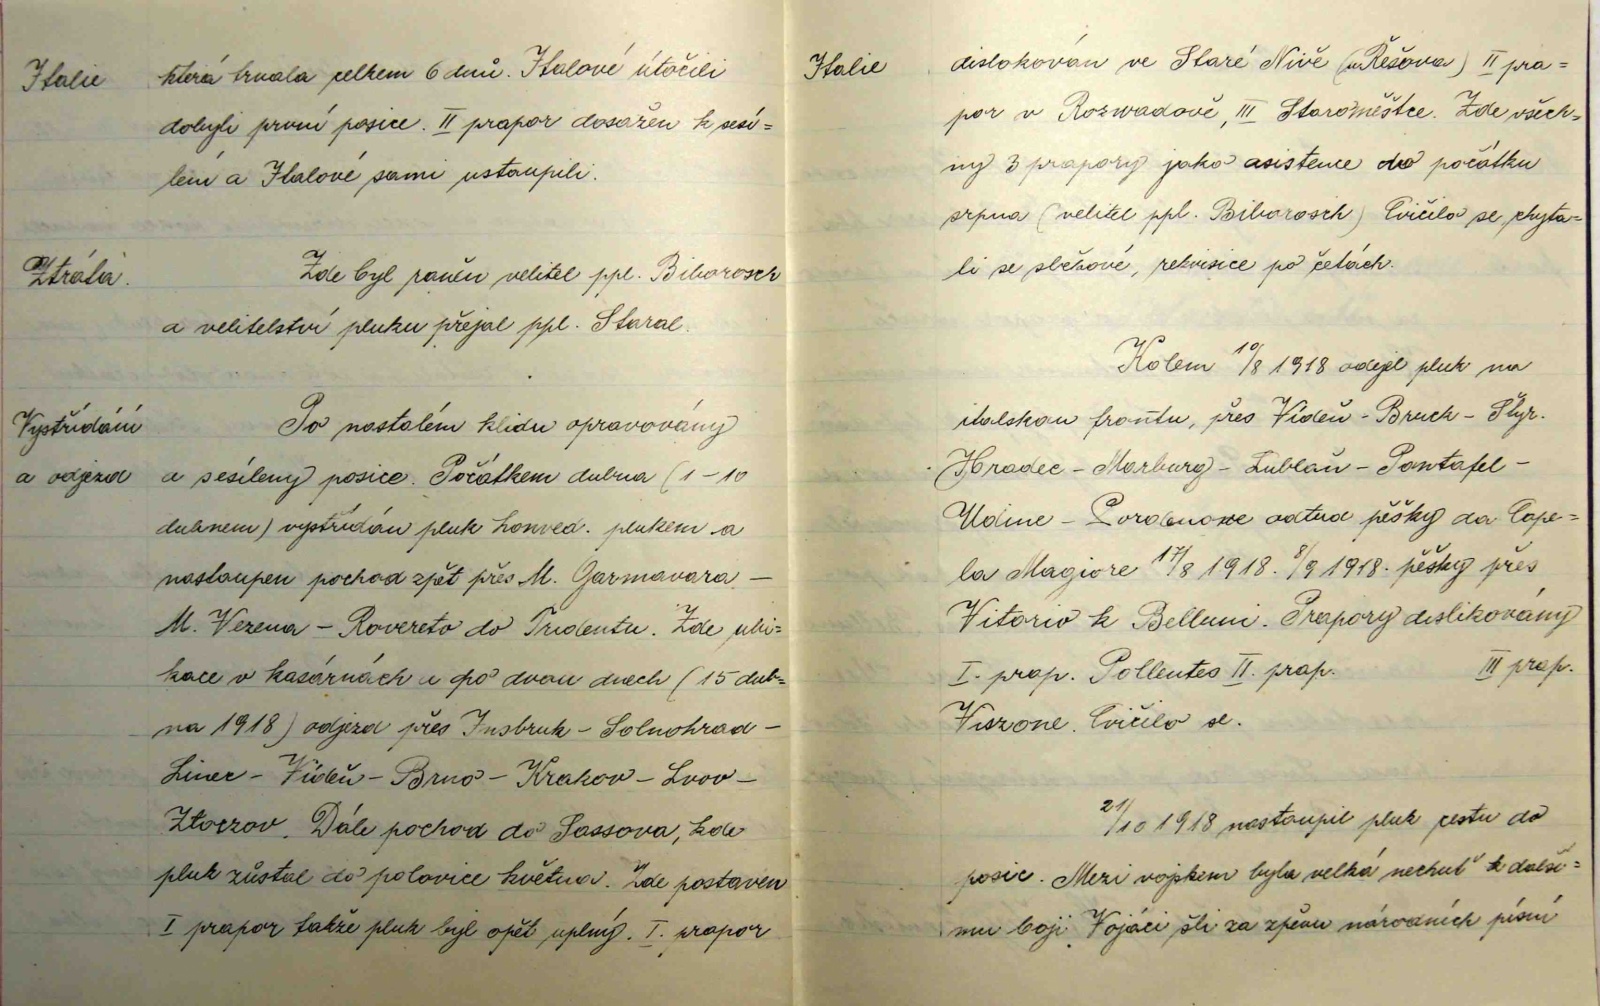 Italie
která trvala celkem 6 dnů. Italové útočili
dobyli první posice. II prapor dosažen k sesí=
lení a Italové sami ustoupili.
Ztráta.
Zde byl raněn velitel ppl. Biborosch
a velitelství pluku přejal ppl. Staral.
Vystřídání
a odjezd
Po nastalém klidu opravovány
a sesíleny posice. Počátkem dubna (1–10
dubnem) vystřídán pluk honvéd. plukem a
nastoupen pochod zpět přes M. Garmavara –
M. Vezena – Rovereto do Tridentu. Zde ubi=
kace v kasárnách a po dvou dnech (15 dub=
na 1918) odjezd přes Insbruk – Solnohrad –
Linec – Vídeň – Brno – Krakov – Lvov –
Ztoczov. Dále pochod do Sassova, kde
pluk zůstal do polovice května. Zde postaven
I prapor takže pluk byl opět uplný. I. prapor
Italie
dislokován ve Staré Nivě (u Řešova) II pra=
por v Rozwadově, III Staroměštce. Zde všech=
ny 3 prapory jako asistence do počátku
srpna (velitel ppl. Biborosch) Cvičilo se, chyta=
li se sběhové, rekvisice po četách.
Kolem 10/8 1918 odejel pluk na
italskou frontu, přes Vídeň – Bruck – Štýr.
Hradec – Marburg – Lublaň – Pontafel –
Udine – Pordenone odtud pěšky do Cape=
la Magiore 17/8 1918. 8/9 1918. pěšky přes
Vitorio k Belluni. Prapory dislikovány
I. prap. Pollentes II. prap. III prap.
Viszone. Cvičilo se.
21/10 1918 nastoupil pluk cestu do
posic. Mezi vojskem byla velká nechuť k další=
mu boji. Vojáci šli za zpěvu národních písní